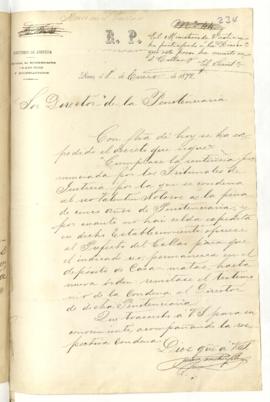 234
R. P.
MINISTERIO DE JUSTICIA
Lima, 18 de Enero de 187
Sor Director de la Penitenciaria
Con fha de hoy se ha ex-
pedido el decreto que sigue
"Cumplase la sentencia pro-
nunciada por los Tribunales de
Justicia por la que se condena
al reo Valentin Solorso a la pena
de cinco años de Penitenciaria; y
por cuanto no hai celda espedita
en dicho Establecimiento, ofíciese
al Prefecto del Callao para que
el indicado reo permanezca en el
depósito de Casas-matas, hasta
nueva orden: remítase el testimo-
nio de la condena al Director
de dicha Penitenciaria
Que trascribo a VS para su
conocimiento acompañando la res-
pectiva condena
Dios gue a VS